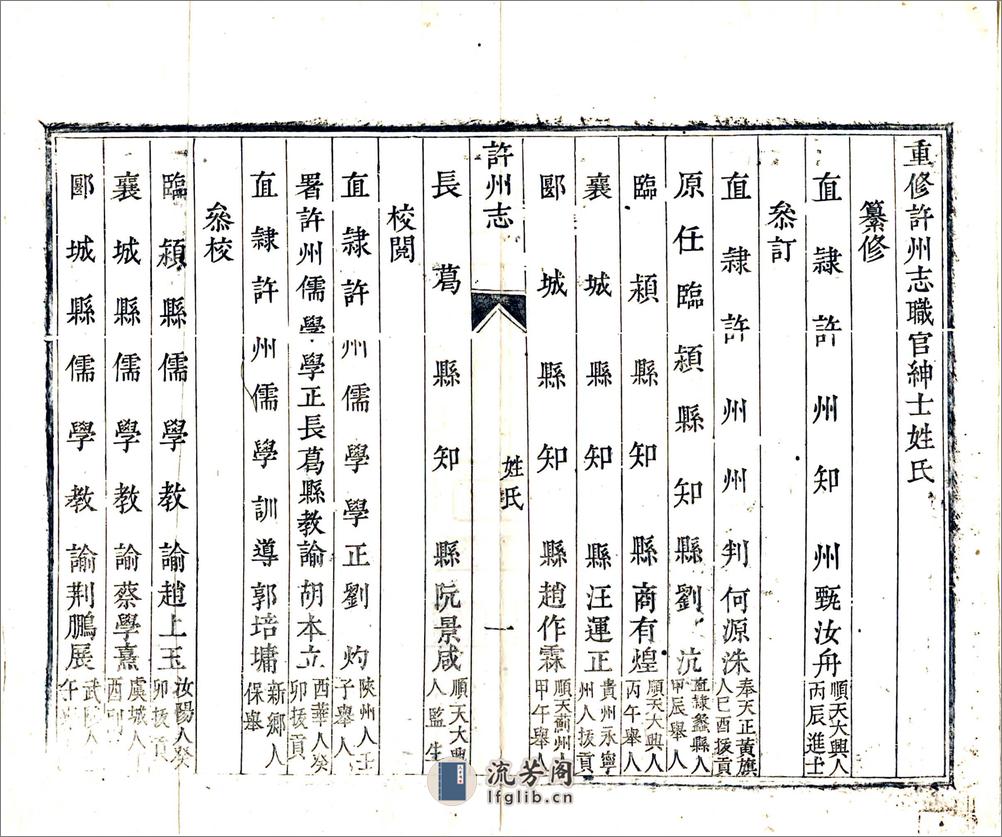 重修許州志職官紳士姓氏
纂修
直隸許州知州甄汝舟順天大興人丙辰進士
叅訂
直隸許州州判何源洙奉天正黃旗人巳酉拔貢
原任臨潁縣知縣劉沆直隸蠡縣人甲辰舉人
臨潁縣知縣商有煌順天大興人丙午舉人
襄城縣知縣汪運正貴州永寧州人拔貢
郾城縣知縣趙作霖順天薊州人甲午舉人
許州志
姓氏
一
長葛縣知縣阮景咸順天大興人監生
校閱
直隸許州儒學學正劉灼陝州人壬子舉人
署許州儒學學正長葛縣教諭胡本立西華人癸卯拔貢
直隸許州儒學訓導郭培墉新鄉人保舉
叅校
臨潁縣儒學教諭趙上玉汝陽人癸卯拔貢
襄城縣儒學教諭蔡學熹虞城人酉
郾城縣儒學教諭荆鵬展武人午
流芳阁
lfglib.cn